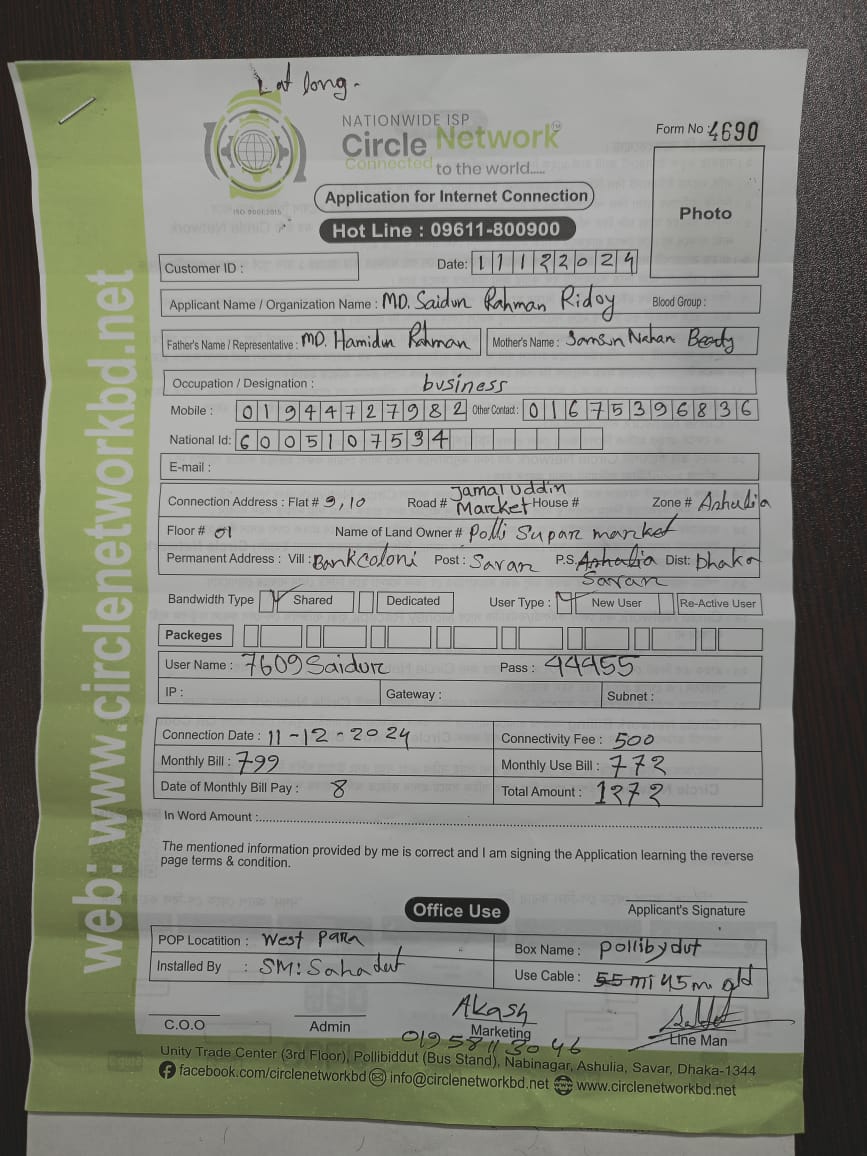 Lat long.
NATIONWIDE ISP
Circle Network
Connected to the world.....
ISO 9001:2015
Form No : 4690
Photo
Application for Internet Connection
Hot Line : 09611-800900
Customer ID :
Date: 11122024
Applicant Name / Organization Name : MD. Saidur Rahman Ridoy Blood Group :
Father's Name / Representative : MD. Hamidur Rahman Mother's Name : Samsun Nahar
Occupation / Designation : business
Mobile : 01944727982 Other Contact : 01675396836
National Id: 6005107534
E-mail :
Connection Address : Flat # 9,10 Road # Jamal Uddin Market House # Zone # Ashulia
Floor # 01 Name of Land Owner # Polli Supar market
Permanent Address : Vill : Bankcoloni Post : Savar P.S. Ashulia Savar Dist: Dhaka
Bandwidth Type Shared Dedicated User Type : New User Re-Active User
Packeges
User Name : 7609Saidur Pass : 44455
IP : Gateway : Subnet :
Connection Date : 11-12-2024 Connectivity Fee : 500
Monthly Bill : 799 Monthly Use Bill : 772
Date of Monthly Bill Pay : 8 Total Amount : 1272
In Word Amount :
The mentioned information provided by me is correct and I am signing the Application learning the reverse
page terms & condition.
Office Use
Applicant's Signature
POP Locatition : West Para Box Name : pollibydut
Installed By : SM: Sahadut Use Cable : 55 mi 45 m. old
C.O.O Admin Akash Marketing Line Man
01958113046
Unity Trade Center (3rd Floor), Pollibiddut (Bus Stand), Nabinagar, Ashulia, Savar, Dhaka-1344
facebook.com/circlenetworkbd info@circlenetworkbd.net www.circlenetworkbd.net
web: www.circlenetworkbd.net